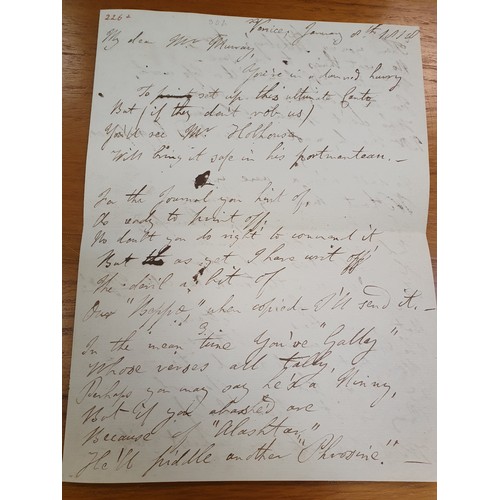 226
Venice, January 8th 1818
My dear Mr. Murray,
You're in a damned hurry
To set up this ultimate Canto,
But (if they don't rob us)
You'll see Mr. Hobhouse
Will bring it safe in his portmanteau.—
For the Journal you hint of,
As ready to print off,
No doubt you do right to commend it
But as yet I have writ off
The devil a bit of
Our "Beppo," when copied—I'll send it.—
3.
In the mean time You've "Gally"
Whose verses all tally,
Perhaps you may say he's a Ninny,
But if you abashed are
Because of "Alashtar"
He'll piddle another "Phrosine".—